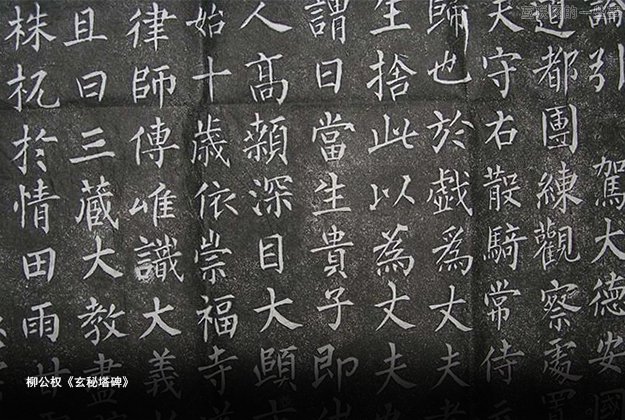 論引 駕大德安國
道都團練觀察處
夫守右散騎常侍
歸也於戲為丈夫
生捨此以為丈夫
謂曰當生貴子即
人高顙深目大頤
始十歲依崇福寺
律師傳唯識大義
且曰三藏大教盡
株杌於情田雨
柳公权《玄秘塔碑》